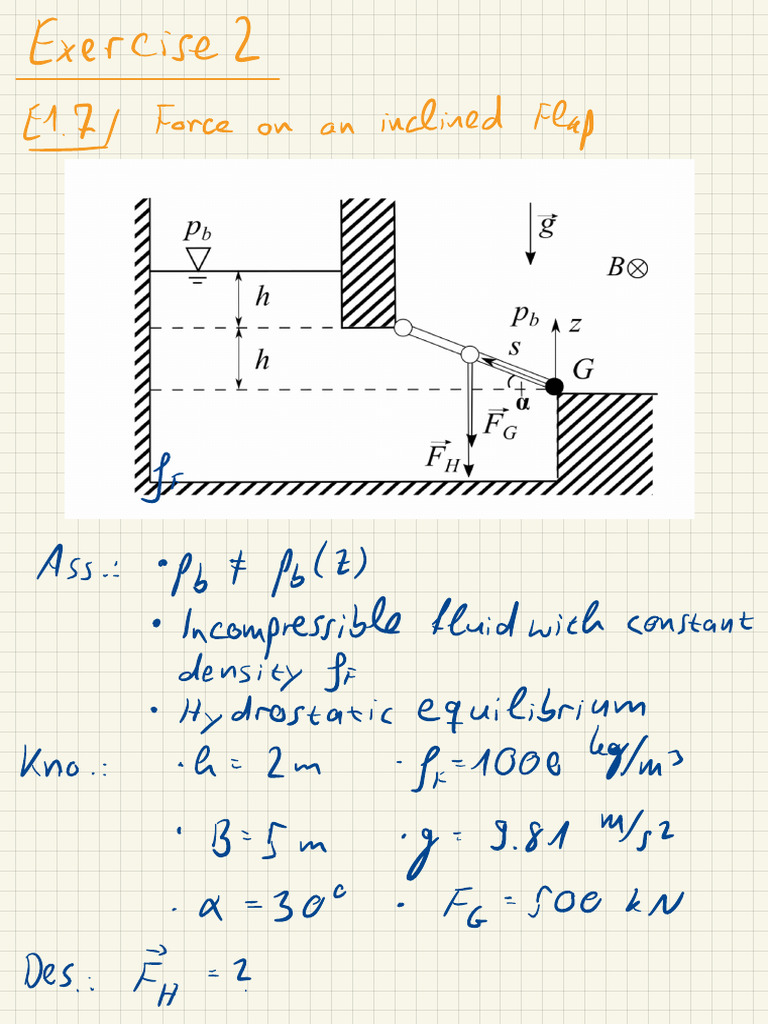 Exercise 2
E1.7/ Force on an inclined Flap
p_b
g
h
B⊗
p_b
z
h
s
G
α
F_G
F_H
ρ_F
Ass.: • p_b ≠ p_b(z)
• Incompressible fluid with constant
density ρ_F
• Hydrostatic equilibrium
Kno.: • h = 2 m • ρ_F = 1000 kg/m³
• B = 5 m • g = 9.81 m/s²
• α = 30° • F_G = 500 kN
Des.: F_H = ?